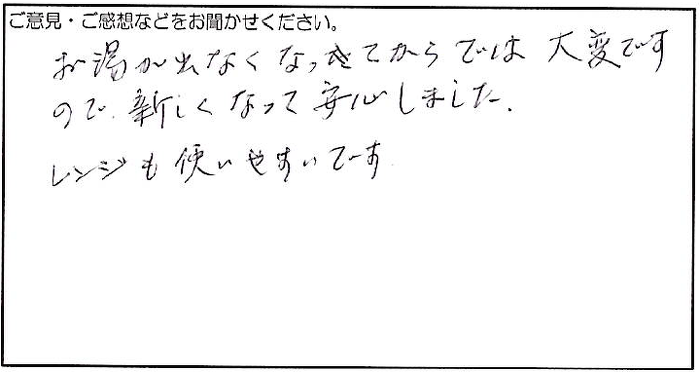 ご意見・ご感想などをお聞かせください。
お湯が出なくなってきてからでは 大変です
ので、新しくなって 安心しました。
レンジも使いやすいです